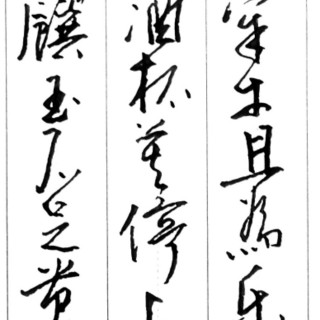 宰牛且為樂
酒杯莫停
饌玉不足貴